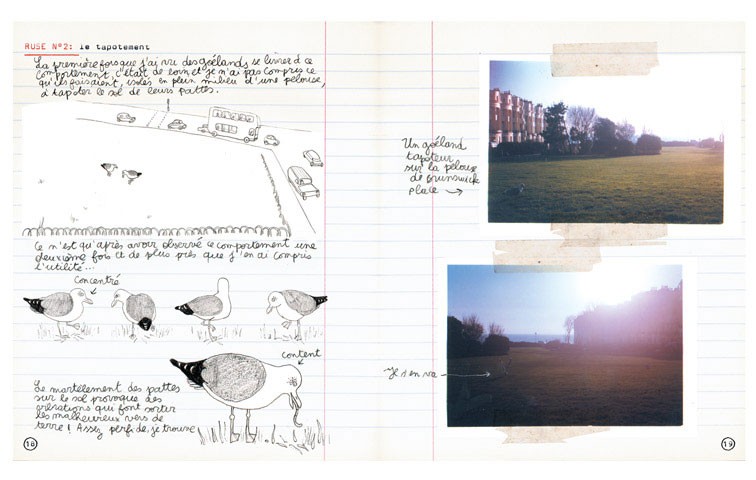 RUSE Nº2: le tapotement
La première fois que j'ai vu des goélands se livrer à ce
comportement, c'était de loin et je n'ai pas compris ce
qu'ils faisaient, isolés en plein milieu d'une pelouse,
à tapoter le sol de leurs pattes.
Ce n'est qu'après avoir observé ce comportement une
deuxième fois et de plus près que j'en ai compris
l'utilité...
concentré
content
Le martèlement des pattes
sur le sol provoque des
vibrations qui font sortir
les malheureux vers de
terre! Assez perfide, je trouve
18
Un goéland
tapoteur
sur la pelouse
de Brunswick
Place
Il s'en va
19